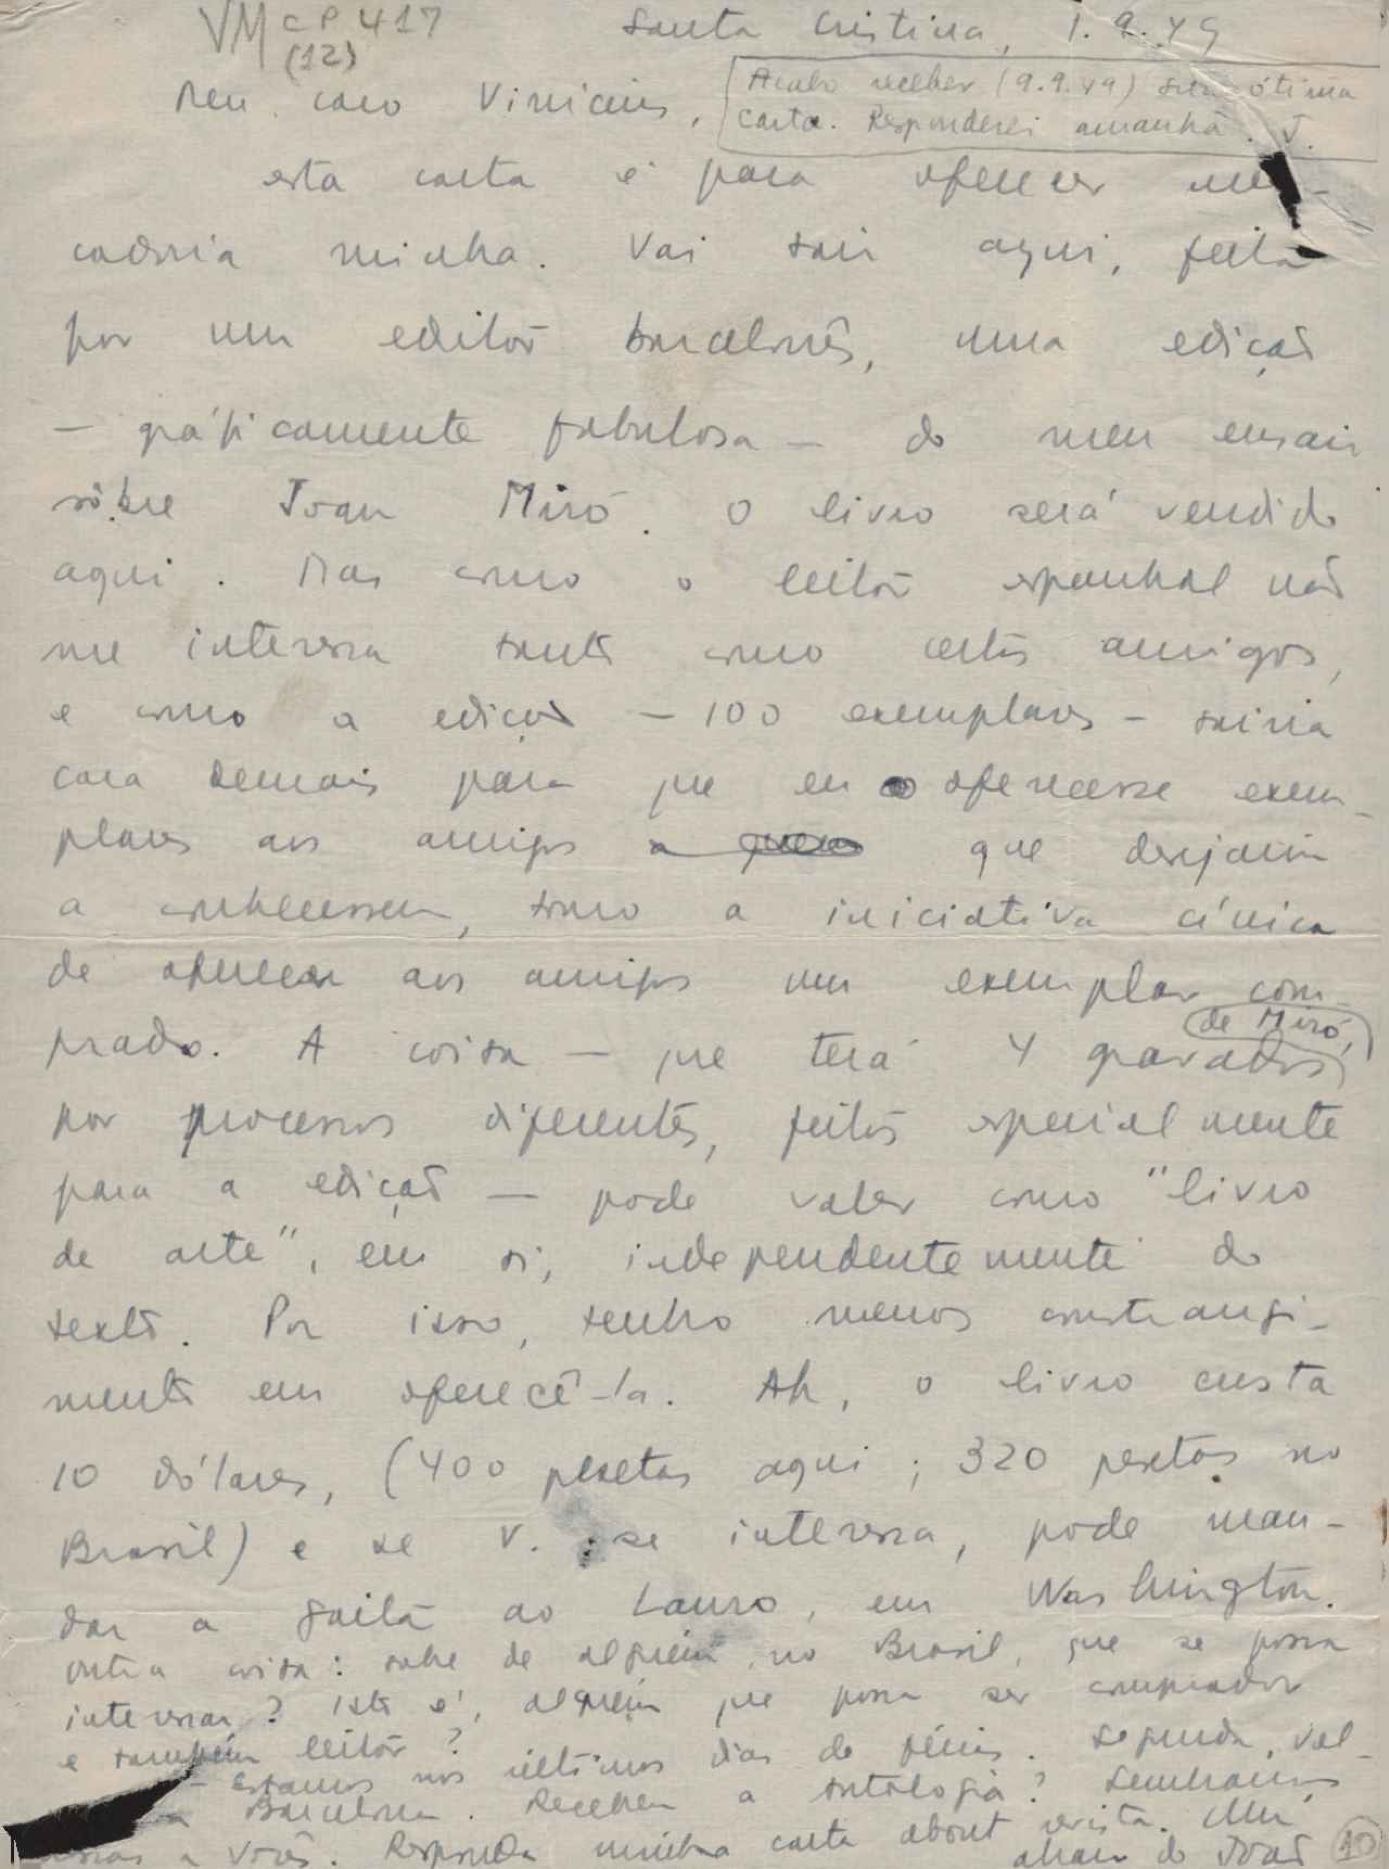 VM CP 417
(12)
Santa Cristina, 1.9.49
Meu caro Vinicius,
Acabo receber (9.9.49) sua ótima
carta. Responderei amanhã. J.
esta carta é para oferecer mer-
cadoria minha. Vai sair aqui, feita
por um editor barcelonês, uma edição
— gráficamente fabulosa — do meu ensaio
sôbre Joan Miró. O livro será vendido
aqui. Mas como o leitor espanhol não
me interessa tanto como certos amigos,
e como a edição — 100 exemplares — sairia
cara demais para que eu oferecesse exem-
plares aos amigos a quem que desejaria
a conhecessem, tomo a iniciativa cínica
de oferecer aos amigos um exemplar com-
prado. A coisa — que terá 4 gravados
de Miró,
por processos diferentes, feitos especialmente
para a edição — pode valer como "livro
de arte", em si, independentemente do
texto. Por isso, tenho menos constrangi-
mento em oferecê-la. Ah, o livro custa
10 dólares, (400 pesetas aqui; 320 pesetas no
Brasil) e se V. se interessa, pode man-
dar a gaita ao Lauro, em Washington.
Outra coisa: sabe de alguém, no Brasil, que se possa
interessar? Isto é, alguém que possa ser comprador
e também leitor?
— Estamos nos últimos dias de férias. Segunda, vol-
a Barcelona. Receberam a antologia? Lembranças
a vocês. Responda minha carta about revista. Um
abraço do João
10